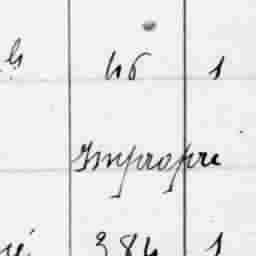 46 1
Impropre
384 1